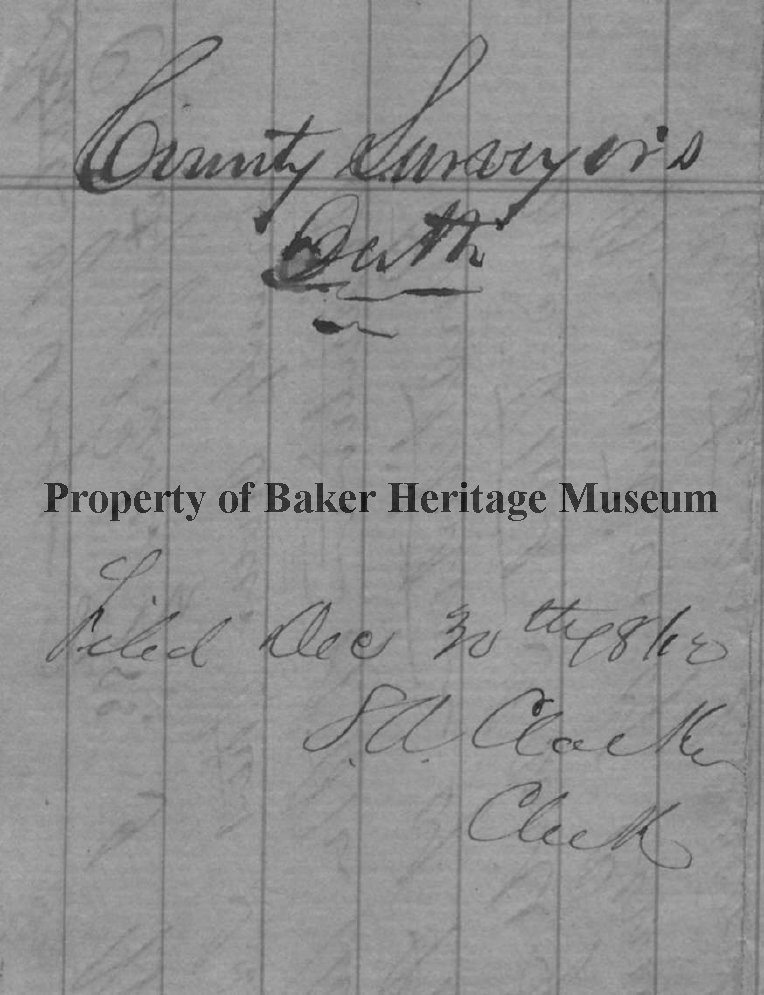 County Surveyor's
Oath
Property of Baker Heritage Museum
Filed Dec 30th
S. A. Clarke
Clerk